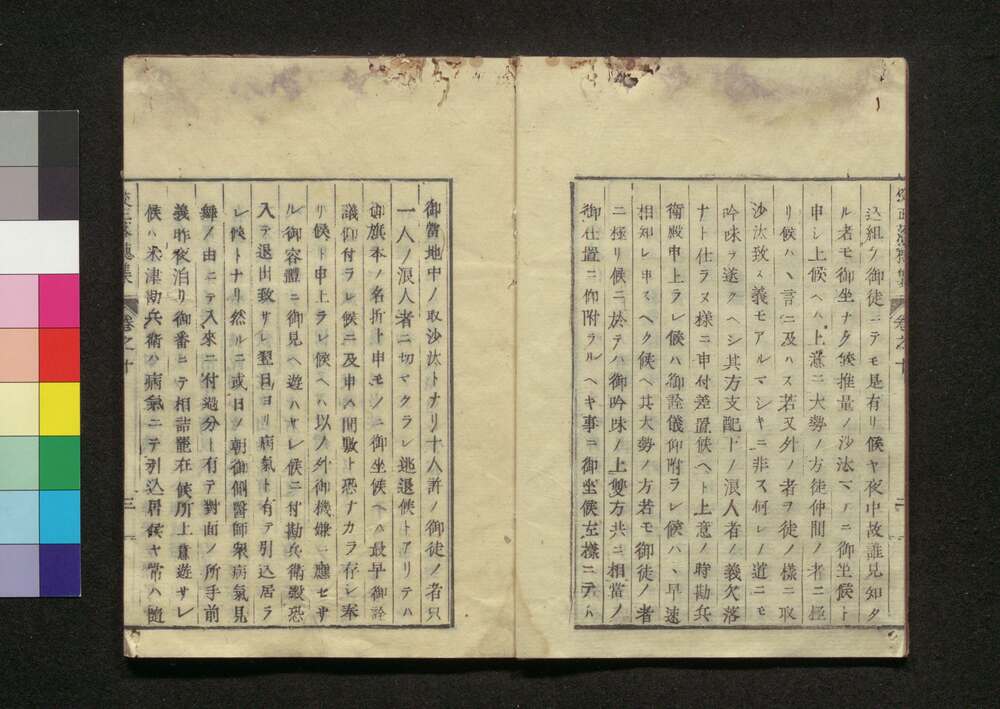 込組ノ御徒ニテモ是有リ候ヤ夜中故誰見知タ
ル者モ御坐ナク候推量ノ沙汰マテニ御坐候ト
申シ上候ヘハ上意ニ大勢ノ方徒仲間ノ者ニ極
リ候ハヽ言ニ及ハス若又外ノ者ヲ徒ノ様ニ取
沙汰致ス義モアルマシキニ非ス何レノ道ニモ
吟味ヲ遂クヘシ其方支配下ノ浪人者ノ義欠落
ナト仕ラヌ様ニ申付差置候ヘト上意ノ時勘兵
衛殿申上ラレ候ハ御詮儀仰附ラレ候ハヽ早速
相知レ申スヘク候ヘ其大勢ノ方若モ御徒ノ者
ニ極リ候ニ於テハ御吟味ノ上雙方共ニ相當ノ
御仕置ニ仰附ラルヘキ事ニ御坐候左様ニテハ
卷之十
二
御當地中ノ取沙汰トナリ十人許ノ御徒ノ者只
一人ノ浪人者ニ切マクラレ逃退候トアリテハ
御旗本ノ名折ト申モノニ御坐候ヘハ最早御詮
議仰付ラレ候ニ及申ス間敷ト恐ナカラ存シ奉
リ候ト申上ラレ候ヘハ以ノ外御機嫌ニ應セサ
ル御容體ニ御見ヘ遊ハサレ候ニ付勘兵衛殿恐
入テ退出致サレ翌日ヨリ病氣ト有テ引込居ラ
レ候トナリ然ルニ或日ノ朝御側醫師衆病氣見
舞ノ由ニテ入來ニ付過分ト有テ對面ノ所手前
義昨夜泊リ御番ニテ相詰罷在候所上意遊サレ
候ハ米津勘兵衛ハ病氣ニテ引込居候ヤ常ハ随
卷之十
三